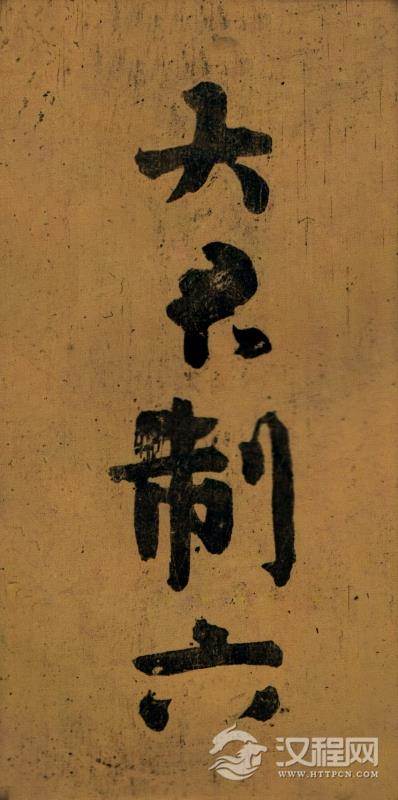 大不制六
汉程网
WWW.HTTPCN.COM